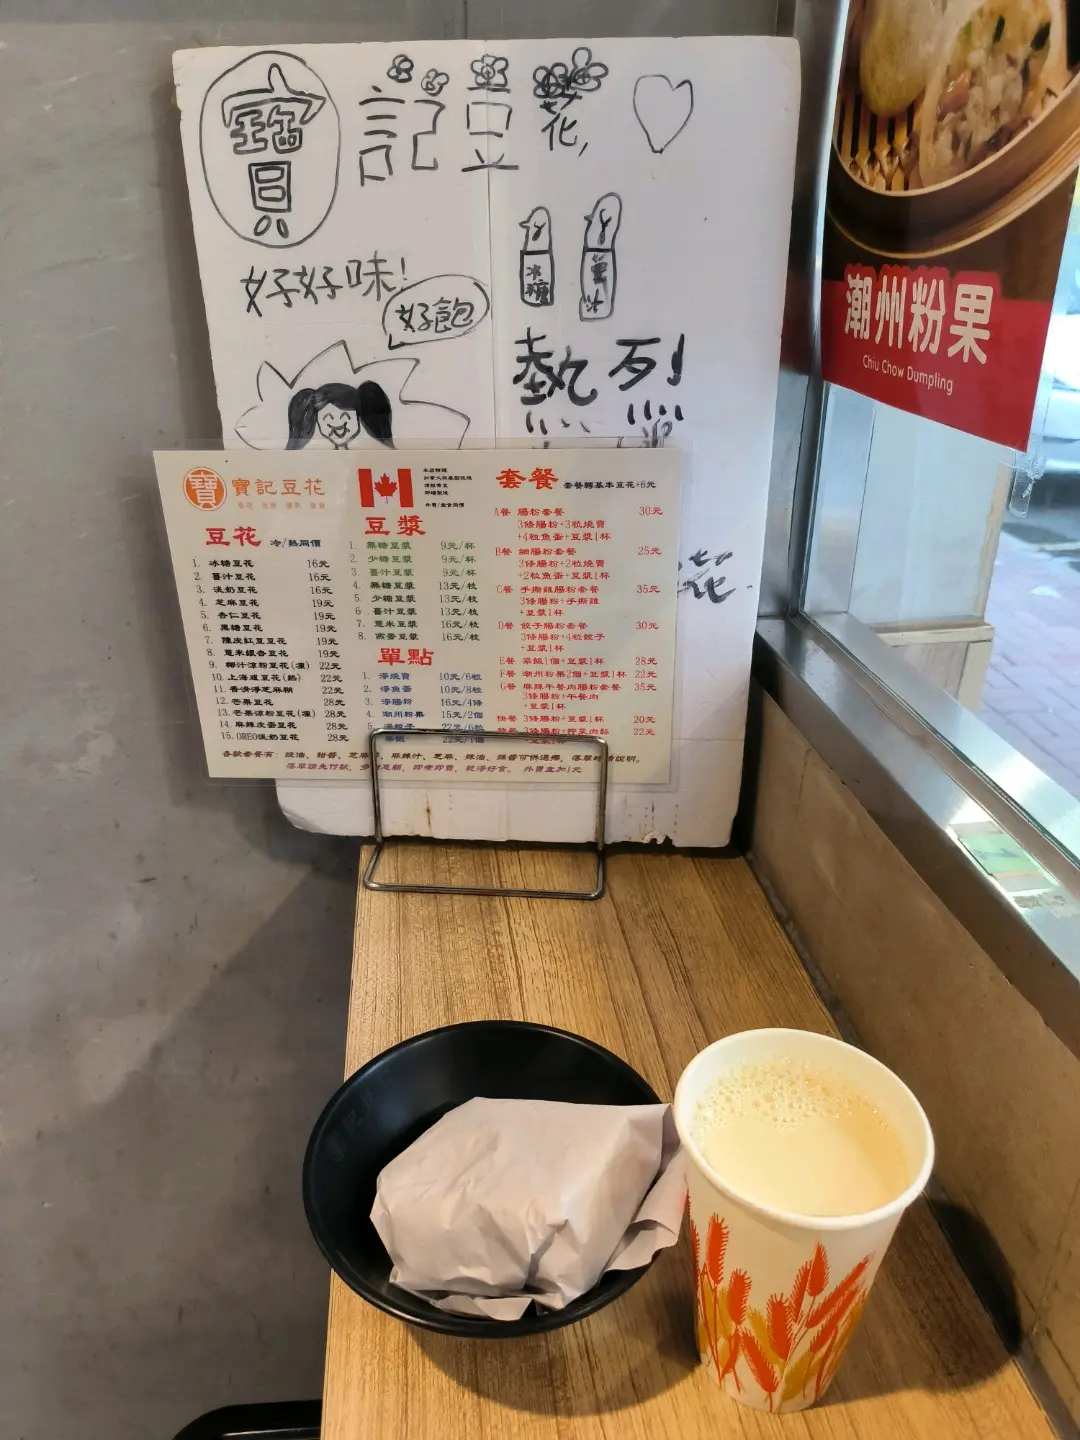 寶記豆花,
好好味!
好飽
冰糖
熱烈
花
潮州粉果
Chiu Chow Dumpling
寶 寶記豆花
豆花 冷/熱同價
1. 冰糖豆花 16元
2. 薑汁豆花 16元
3. 淡奶豆花 16元
4. 芝麻豆花 19元
5. 杏仁豆花 19元
6. 黑糖豆花 19元
7. 陳皮紅豆豆花 19元
8. 薏米銀杏豆花 19元
9. 椰汁涼粉豆花(凍) 22元
10. 上海咸豆花(熱) 22元
11. 香滑淨芝麻糊 22元
12. 芒果豆花 28元
13. 芒果涼粉豆花(凍) 28元
14. 麻辣皮蛋豆花 28元
15. OREO淡奶豆花 28元
豆漿
1. 無糖豆漿 9元/杯
2. 少糖豆漿 9元/杯
3. 薑汁豆漿 9元/杯
4. 無糖豆漿 13元/枝
5. 少糖豆漿 13元/枝
6. 薑汁豆漿 13元/枝
7. 薏米豆漿 16元/枝
8. 燕麥豆漿 16元/枝
單點
1. 淨燒賣 10元/6粒
2. 淨魚蛋 10元/8粒
3. 淨腸粉 16元/4條
4. 潮州粉果 15元/2個
22元/6粒
22元/1個
套餐 套餐轉基本豆花+6元
A餐 腸粉套餐 30元
3條腸粉+3粒燒賣
+4粒魚蛋+豆漿1杯
B餐 細腸粉套餐 25元
3條腸粉+2粒燒賣
+2粒魚蛋+豆漿1杯
C餐 手撕雞腸粉套餐 35元
3條腸粉+手撕雞
+豆漿1杯
D餐 餃子腸粉套餐 30元
3條腸粉+4粒餃子
+豆漿1杯
E餐 粢飯1個+豆漿1杯 28元
F餐 潮州粉果2個+豆漿1杯 22元
G餐 麻辣午餐肉腸粉套餐 35元
3條腸粉+午餐肉
+豆漿1杯
快餐 3條腸粉+豆漿1杯 20元
22元
落單請先付款,
即煮即賣, 乾淨好食。 外賣盒加1元